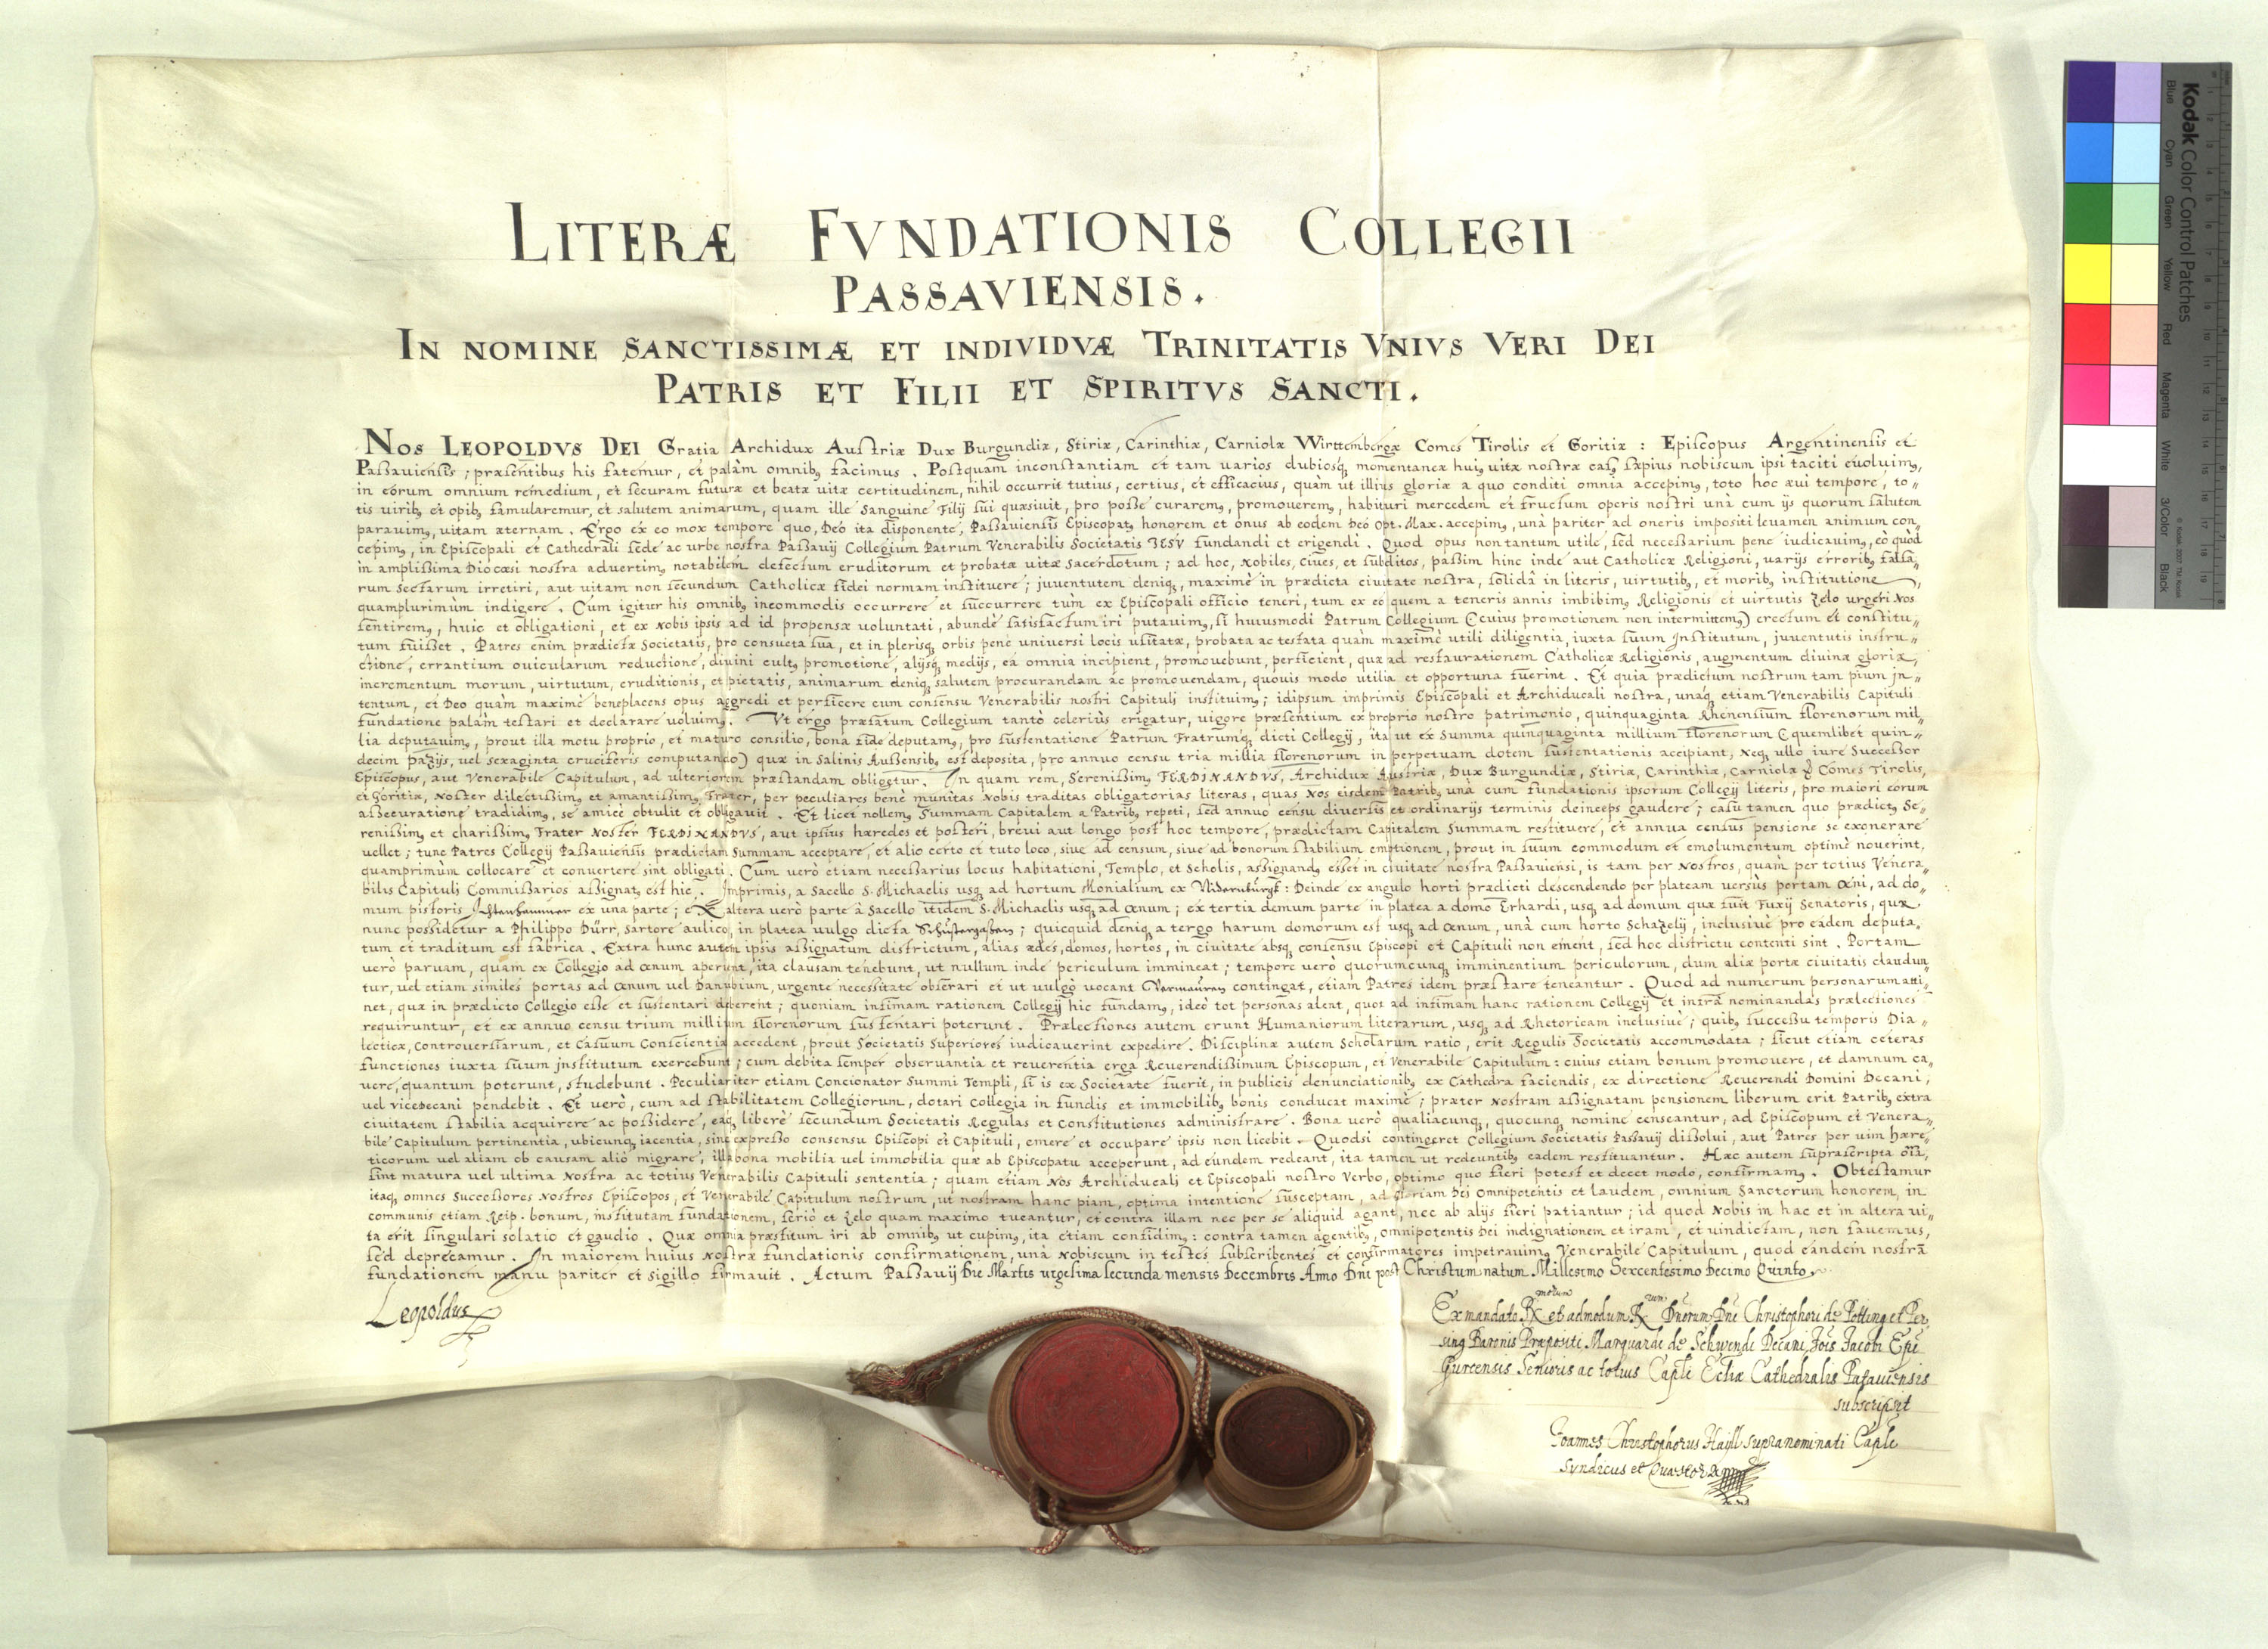 LITERÆ FVNDATIONIS COLLEGII
PASSAVIENSIS.
IN NOMINE SANCTISSIMÆ ET INDIVIDVÆ TRINITATIS VNIVS VERI DEI
PATRIS ET FILII ET SPIRITVS SANCTI.
NOS LEOPOLDVS DEI Gratia Archidux Austriæ Dux Burgundiæ, Stiriæ, Carinthiæ, Carniolæ Wirttembergæ Comes Tirolis et Goritiæ : Episcopus Argentinensis et
Paßauiensis ; præsentibus his fatemur, et palàm omnibꝰ facimus . Postquam inconstantiam et tam varios dubiosqꝫ momentaneæ huiꝰ uitæ nostræ casꝰ sæpius nobiscum ipsi taciti euoluimꝰ,
in eorum omnium remedium, et securam futuræ et beatæ uitæ certitudinem, nihil occurrit tutius, certius, et efficacius, quàm ut illius gloriæ a quo conditi omnia accepimꝰ, toto hoc æui tempore, to„
tis uiribꝰ et opibꝰ famularemur, et salutem animarum, quam ille Sanguine Filij sui quæsiuit, pro poße curaremꝰ, promoueremꝰ, habituri mercedem et fructum operis nostri unà cum ijs quorum salutem
parauimꝰ, uitam æternam . Ergo ex eo mox tempore quo, Deo ita disponente, Paßauiensis Episcopatꝰ honorem et onus ab eodem Deo Opt. Max. accepimꝰ, unà pariter ad oneris impositi leuamen animum con„
cepimꝰ, in Episcopali et Cathedrali sede ac urbe nostra Paßauij Collegium Patrum Venerabilis Societatis IESV fundandi et erigendi . Quod opus non tantum utile, sed neceßarium pene iudicauimꝰ, eò quòd
in amplißima Diœcesi nostra aduertimꝰ notabilem defectum eruditorum et probatæ uitæ Sacerdotum ; ad hoc, Nobiles, Ciues, et subditos, paßim hinc inde aut Catholicæ Religioni, varijs erroribꝰ falsa„
rum Sectarum irretiri, aut vitam non secundum Catholicæ fidei normam instituere ; juuentutem deniqꝫ, maximè in prædicta ciuitate nostra, solidâ in literis, virtutibꝰ, et moribꝰ institutione,
quamplurimùm indigere . Cum igitur his omnibꝰ incommodis occurrere et succurrere tùm ex Episcopali officio teneri, tum ex eo quem a teneris annis imbibimꝰ Religionis et virtutis zelo urgeri Nos
sentiremꝰ, huic et obligationi, et ex Nobis ipsis ad id propensæ voluntati, abunde satisfactum iri putauimꝰ, si huiusmodi Patrum Collegium (cuius promotionem non intermittemꝰ) erectum et constitu„
tum fuißet . Patres enim prædictæ Societatis, pro consueta sua, et in plerisqꝫ orbis pene uniuersi locis usitata, probata ac testata quàm maximè utili diligentia, iuxta suum Institutum, juuentutis instru„
ctione, errantium ouicularum reductione, diuini cultꝰ promotione, alijsqꝫ medijs, ea omnia incipient, promouebunt, perficient, quæ ad restaurationem Catholicæ Religionis, augmentum diuinæ gloriæ,
incrementum morum, virtutum, eruditionis, et pietatis, animarum deniqꝫ salutem procurandam ac promouendam, quouis modo utilia et opportuna fuerint . Et quia prædictum nostrum tam pium in„
tentum, et Deo quam maximè beneplacens opus aggredi et perficere cum consensu Venerabilis nostri Capituli instituimꝰ ; idipsum imprimis Episcopali et Archiducali nostra, unaqꝫ etiam Venerabilis Capituli
fundatione palàm testari et declarare uoluimꝰ. Vt ergo præfatum Collegium tantò celeriùs erigatur, uigore præsentium ex proprio nostro patrimonio, quinquaginta Rhenensium florenorum mil„
lia deputauimꝰ, prout illa motu proprio, et maturo consilio, bona fide deputamꝰ, pro sustentatione Patrum Fratrumqꝫ dicti Collegij, ita ut ex Summa quinquaginta millium florenorum (quemlibet quin„
decim pazijs, vel sexaginta cruciferis computando) quæ in Salinis Außensibꝰ est deposita, pro annuo censu tria millia florenorum in perpetuam dotem sustentationis accipiant, neqꝫ ullo iure Succeßor
Episcopus, aut Venerabile Capitulum, ad ulteriorem præstandam obligetur . In quam rem, Serenißimꝰ FERDINANDVS, Archidux Austriæ, Dux Burgundiæ, Stiriæ, Carinthiæ, Carniolæ & Comes Tirolis,
et Goritiæ, Noster dilectißimꝰ et amantißimꝰ Frater, per peculiares benè munitas Nobis traditas obligatorias literas, quas Nos eisdem Patribꝰ unà cum fundationis ipsorum Collegij literis, pro maiori eorum
aßecuratione tradidimꝰ, se amicè obtulit et obligauit . Et licet nollemꝰ Summam Capitalem a Patribꝰ repeti, sed annuo censu diuersis et ordinarijs terminis deinceps gaudere ; casu tamen quo prædictꝰ Se„
renißimꝰ et charißimꝰ Frater Noster FERDINANDVS, aut ipsius hæredes et posteri, breui aut longo post hoc tempore, prædictam Capitalem Summam restituere, et annua census pensione se exonerare
uellet ; tunc Patres Collegij Paßauiensis prædictam Summam acceptare, et alio certo et tuto loco, siue ad censum, siue ad bonorum stabilium emptionem, prout in suum commodum et emolumentum optimè nouerint,
quamprimùm collocare et conuertere sint obligati . Cum verò etiam neceßarius locus habitationi, Templo, et Scholis, aßignandꝰ eßet in ciuitate nostra Paßauiensi, is tam per Nostros, quàm per totius Venera„
bilis Capituli Commißarios aßignatꝰ est hic . Imprimis, a Sacello S. Michaelis usqꝫ ad hortum Monialium ex Nidernburgk : Deinde ex angulo horti prædicti descendendo per plateam versùs portam Œni, ad do„
mum pistoris ex una parte ; ex altera verò parte â Sacello itidem S. Michaelis usqꝫ ad Œnum ; ex tertia demum parte in platea a domo Erhardi, usqꝫ ad domum quæ fuit Fuxij Senatoris, quæ
nunc possidetur a Philippo Dürr, sartore aulico, in platea uulgo dicta Schustergaßen ; quicquid deniqꝫ a tergo harum domorum est usqꝫ ad Œnum, unà cum horto Schazelij, inclusiuè pro eadem deputa„
tum et traditum est fabrica . Extra hunc autem ipsis aßignatum districtum, alias ædes, domos, hortos, in ciuitate absqꝫ consensu Episcopi et Capituli non ement, sed hoc districtu contenti sint . Portam
verò paruam, quam ex Collegio ad Œnum aperient, ita clausam tenebunt, ut nullum inde periculum immineat ; tempore verò quorumcunqꝫ imminentium periculorum, dum aliæ portæ ciuitatis claudun„
tur, vel etiam similes portas ad Œnum vel Danubium, urgente necessitate obserari et ut vulgò vocant Vermauren contingat, etiam Patres idem præstare teneantur . Quod ad numerum personarum atti„
net, quæ in prædicto Collegio eße et sustentari deberent ; quoniam infimam rationem Collegij hic fundamꝰ, ideò tot personas alent, quot ad infimam hanc rationem Collegij et infrà nominandas prælectiones
requiruntur, et ex annuo censu trium millium florenorum sustentari poterunt . Prælectiones autem erunt Humaniorum literarum, usqꝫ ad Rhetoricam inclusiuè ; quibꝰ succeßu temporis Dia„
lecticæ, Controuersiarum, et Casuum Conscientiæ accedent, prout Societatis Superiores iudicauerint expedire . Disciplinæ autem Scholarum ratio, erit Regulis Societatis accommodata ; sicut etiam ceteras
functiones iuxta suum institutum exercebunt ; cum debita semper obseruantia et reuerentia erga Reuerendißimum Episcopum, et Venerabile Capitulum : cuius etiam bonum promouere, et damnum ca„
uere, quantum poterunt, studebunt . Peculiariter etiam Concionator Summi Templi, si is ex Societate fuerit, in publicis denunciationibꝰ ex Cathedra faciendis, ex directione Reuerendi Domini Decani,
vel ViceDecani pendebit . Et verò, cum ad stabilitatem Collegiorum, dotari Collegia in fundis et immobilibꝰ bonis conducat maximè ; præter Nostram aßignatam pensionem liberum erit Patribꝰ extra
ciuitatem stabilia acquirere ac poßidere, eaqꝫ liberè secundum Societatis Regulas et Constitutiones administrare . Bona verò qualiacunqꝫ, quocunqꝫ nomine censeantur, ad Episcopum et Venera„
bile Capitulum pertinentia, ubicunqꝫ iacentia, sine expreßo consensu Episcopi et Capituli, emere et occupare ipsis non licebit . Quodsi contingeret Collegium Societatis Paßauij dißolui, aut Patres per uim hære„
ticorum uel aliam ob causam aliò migrare, illa bona mobilia uel immobilia quæ ab Episcopatu acceperunt, ad eundem redeant, ita tamen ut redeuntibꝰ eadem restituantur . Hæc autem suprascripta oĩa,
sint matura uel ultima Nostra ac totius Venerabilis Capituli sententia ; quam etiam Nos Archiducali et Episcopali nostro Verbo, optimo quo fieri potest et decet modo, confirmamꝰ . Obtestamur
itaqꝫ omnes Succeßores Nostros Episcopos, et Venerabile Capitulum nostrum, ut nostram hanc piam, optima intentione susceptam, ad gloriam Dei Omnipotentis et laudem, omnium Sanctorum honorem, in
communis etiam Reip. bonum, institutam fundationem, seriò et zelo quam maximo tueantur, et contra illam nec per se aliquid agant, nec ab alijs fieri patiantur ; id quod Nobis in hac et in altera ui„
ta erit singulari solatio et gaudio . Quæ omnia præstitum iri ab omnibꝰ ut cupimꝰ, ita etiam confidimꝰ : contra tamen agentibꝰ, omnipotentis Dei indignationem et iram, et uindictam, non fauemus,
sed deprecamur . In maiorem huius Nostræ fundationis confirmationem, unà Nobiscum in testes subscribentes et confirmatores impetrauimꝰ Venerabile Capitulum, quod eandem nostrã
fundationem manu pariter et sigillo firmauit . Actum Paßauij Die Martis uigesima secunda mensis Decembris Anno Dni post Christum natum Millesimo Sexcentesimo Decimo Quinto
Leopoldus
Ex mandato et admodum Dnorum Dni Christophori de Potting et Per„
sing Baronis Præpositi Marquardi de Schwendi Decani Jois Jacobi Epi
Gurcensis Senioris ac totius Capli Eclæ Cathedralis Paßauiensis
subscripsit
Joannes Christophorus Hayll supranominati Capli
Syndicus et Quæstor
Kodak Color Control Patches
Blue Cyan Green Yellow Red Magenta White 3/Color Black